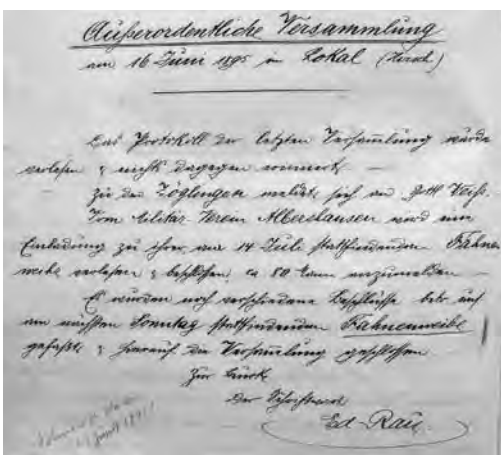 Außerordentliche Versammlung
am 16 Juni 1895 im Lokal (Hirsch)
Das Protokoll der letzten Versammlung wurde
verlesen & nichts dagegen erinnert.
Zu den Zöglingen meldete sich an Gottl. Weiß.
Vom Militär Verein Albershausen wird eine
Einladung zu ihrer am 14 Juli stattfindenden Fahnen
weihe verlesen & beschlossen, ca 80 Mann anzumelden
Es wurden noch verschiedene Beschlüsse betr. auf
am nächsten Sonntag stattfindenden Fahnenweihe
gefaßt & hierauf die Versammlung geschlossen
Der Schriftwart
Ed. Rau.